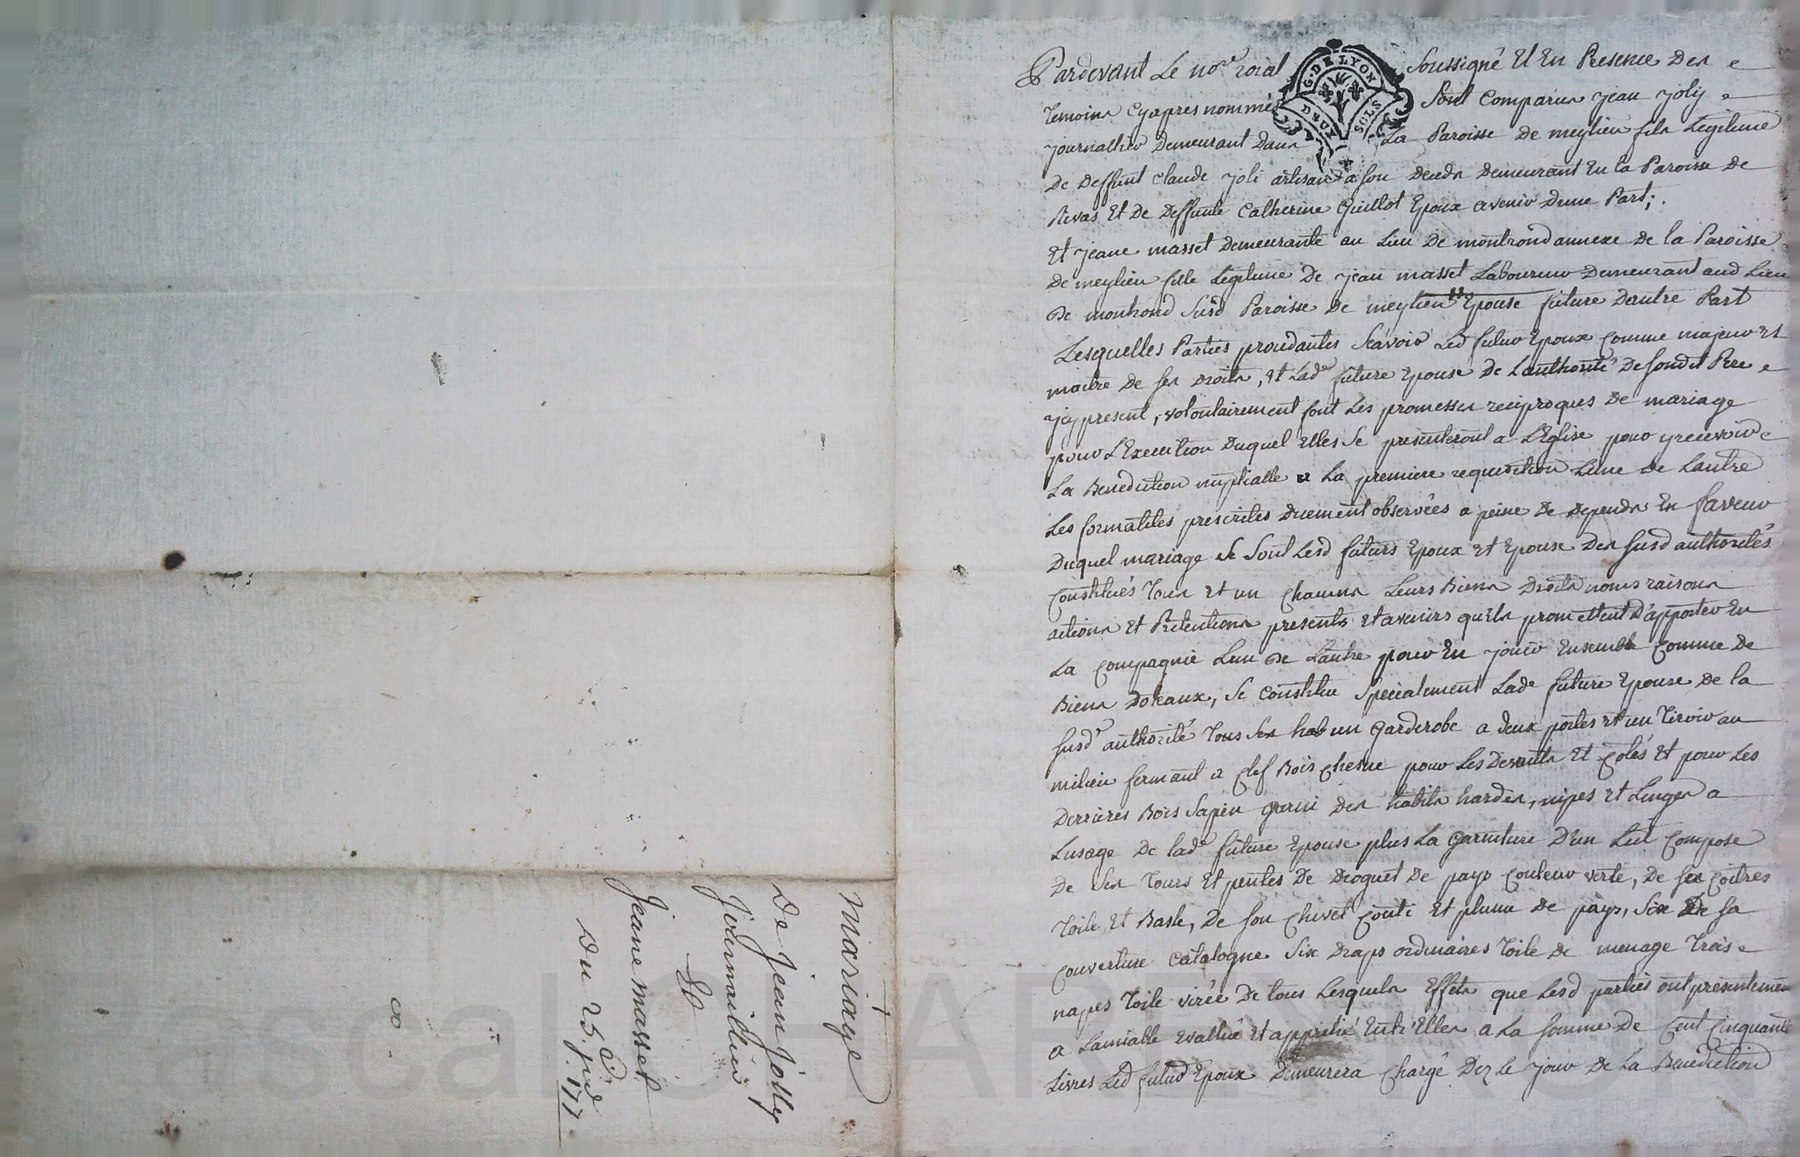 Pardevant Le no.re roial Soussigné Et En Presence Des
G. DE LYON
DEUX SOLS
Temoins Cyapres nommés Sont Comparus Jean Joly
Journallier Demeurant Dans La Paroisse de meylieu fils Legitime
De Deffunt Claude Joli artisan a son deceds Demeurant En la Paroisse de
Rivas Et De Deffunte Catherine Guillot Epoux avenir Dune Part;.
Et Jeane masset Demeurante au Lieu De montrond annexe de la Paroisse
De meylieu fille Legitime De Jean masset Laboureur Demeurant aud Lieu
De montrond Susd Paroisse De meylieu Epouse future Dautre Part
Lesquelles Parties procedantes Scavoir Led futur Epoux Comme majeur Et
maitre De ses Droits, Et Lade future Epouse De Lauthorité De sondit Pere
Jcy present, volontairement font Les promesses reciproques De mariage
pour LExecution Duquel Elles Se presenteront a LEglise pour y recevoir
La Benediction nuptialle a La premiere requisition Lune De Lautre
Les formalites prescrites Duement observées a peine De Depends En faveur
Duquel mariage Se Sont Lesd futurs Epoux Et Epouse Des susd authorités
Constitués Tous Et un Chacuns Leurs Biens Droits noms raisons
actions Et Pretentions presents Et avenirs quils promettent D'apporter En
La Compagnie Lun De Lautre pour En Jouir Ensemble Comme De
Biens Doteaux, Se Constitue Specialement Lade future Epouse De la
susd' authorité Tous Ses hab un Garderobe a deux portes Et un Tiroir au
milieu fermant a Clef Bois Chesne pour Les Devants Et Cotés Et pour Les
Derrieres Bois Sapin garni Des habits hardes, nipes Et Linges a
Lusage De lade future Epouse plus La Garniture D'un Lit Compose
De Ses Tours Et pentes De Droguet De pays Couleur verte, De ses Coitres
Toile Et Basle, De son Chevet Couti Et plume De pays, Six De sa
Couverture Catalogne Six Draps ordinaires Toile De menage Trois
napes Toile virée De tous Lesquels Effets que Lesd parties ont presentement
a Lamiable Evallué Et apprétié Entr'Elles a La somme De Cent Cinquante
Livres Led futur Epoux Demeurera Chargé Dez le Jour De La Benediction
Mariage
De Jean Jolly
Journaillier
Jeane masset
Du 25